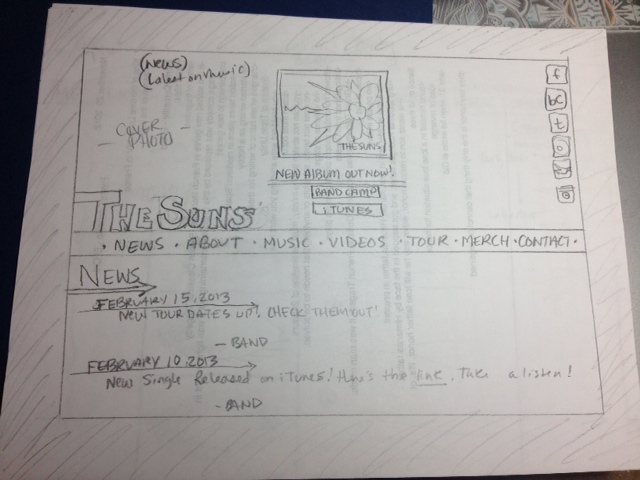 (News)
(Latest on music)
- COVER
PHOTO -
THE SUNS
NEW ALBUM OUT NOW!
BANDCAMP
iTUNES
f
bc
t
THE SUNS
· NEWS · ABOUT · MUSIC · VIDEOS · TOUR · MERCH · CONTACT ·
NEWS
FEBRUARY 15, 2013
NEW TOUR DATES UP! CHECK THEM OUT!
- BAND
FEBRUARY 10, 2013
New Single Released on iTunes! Here's the link. Take a listen!
- BAND